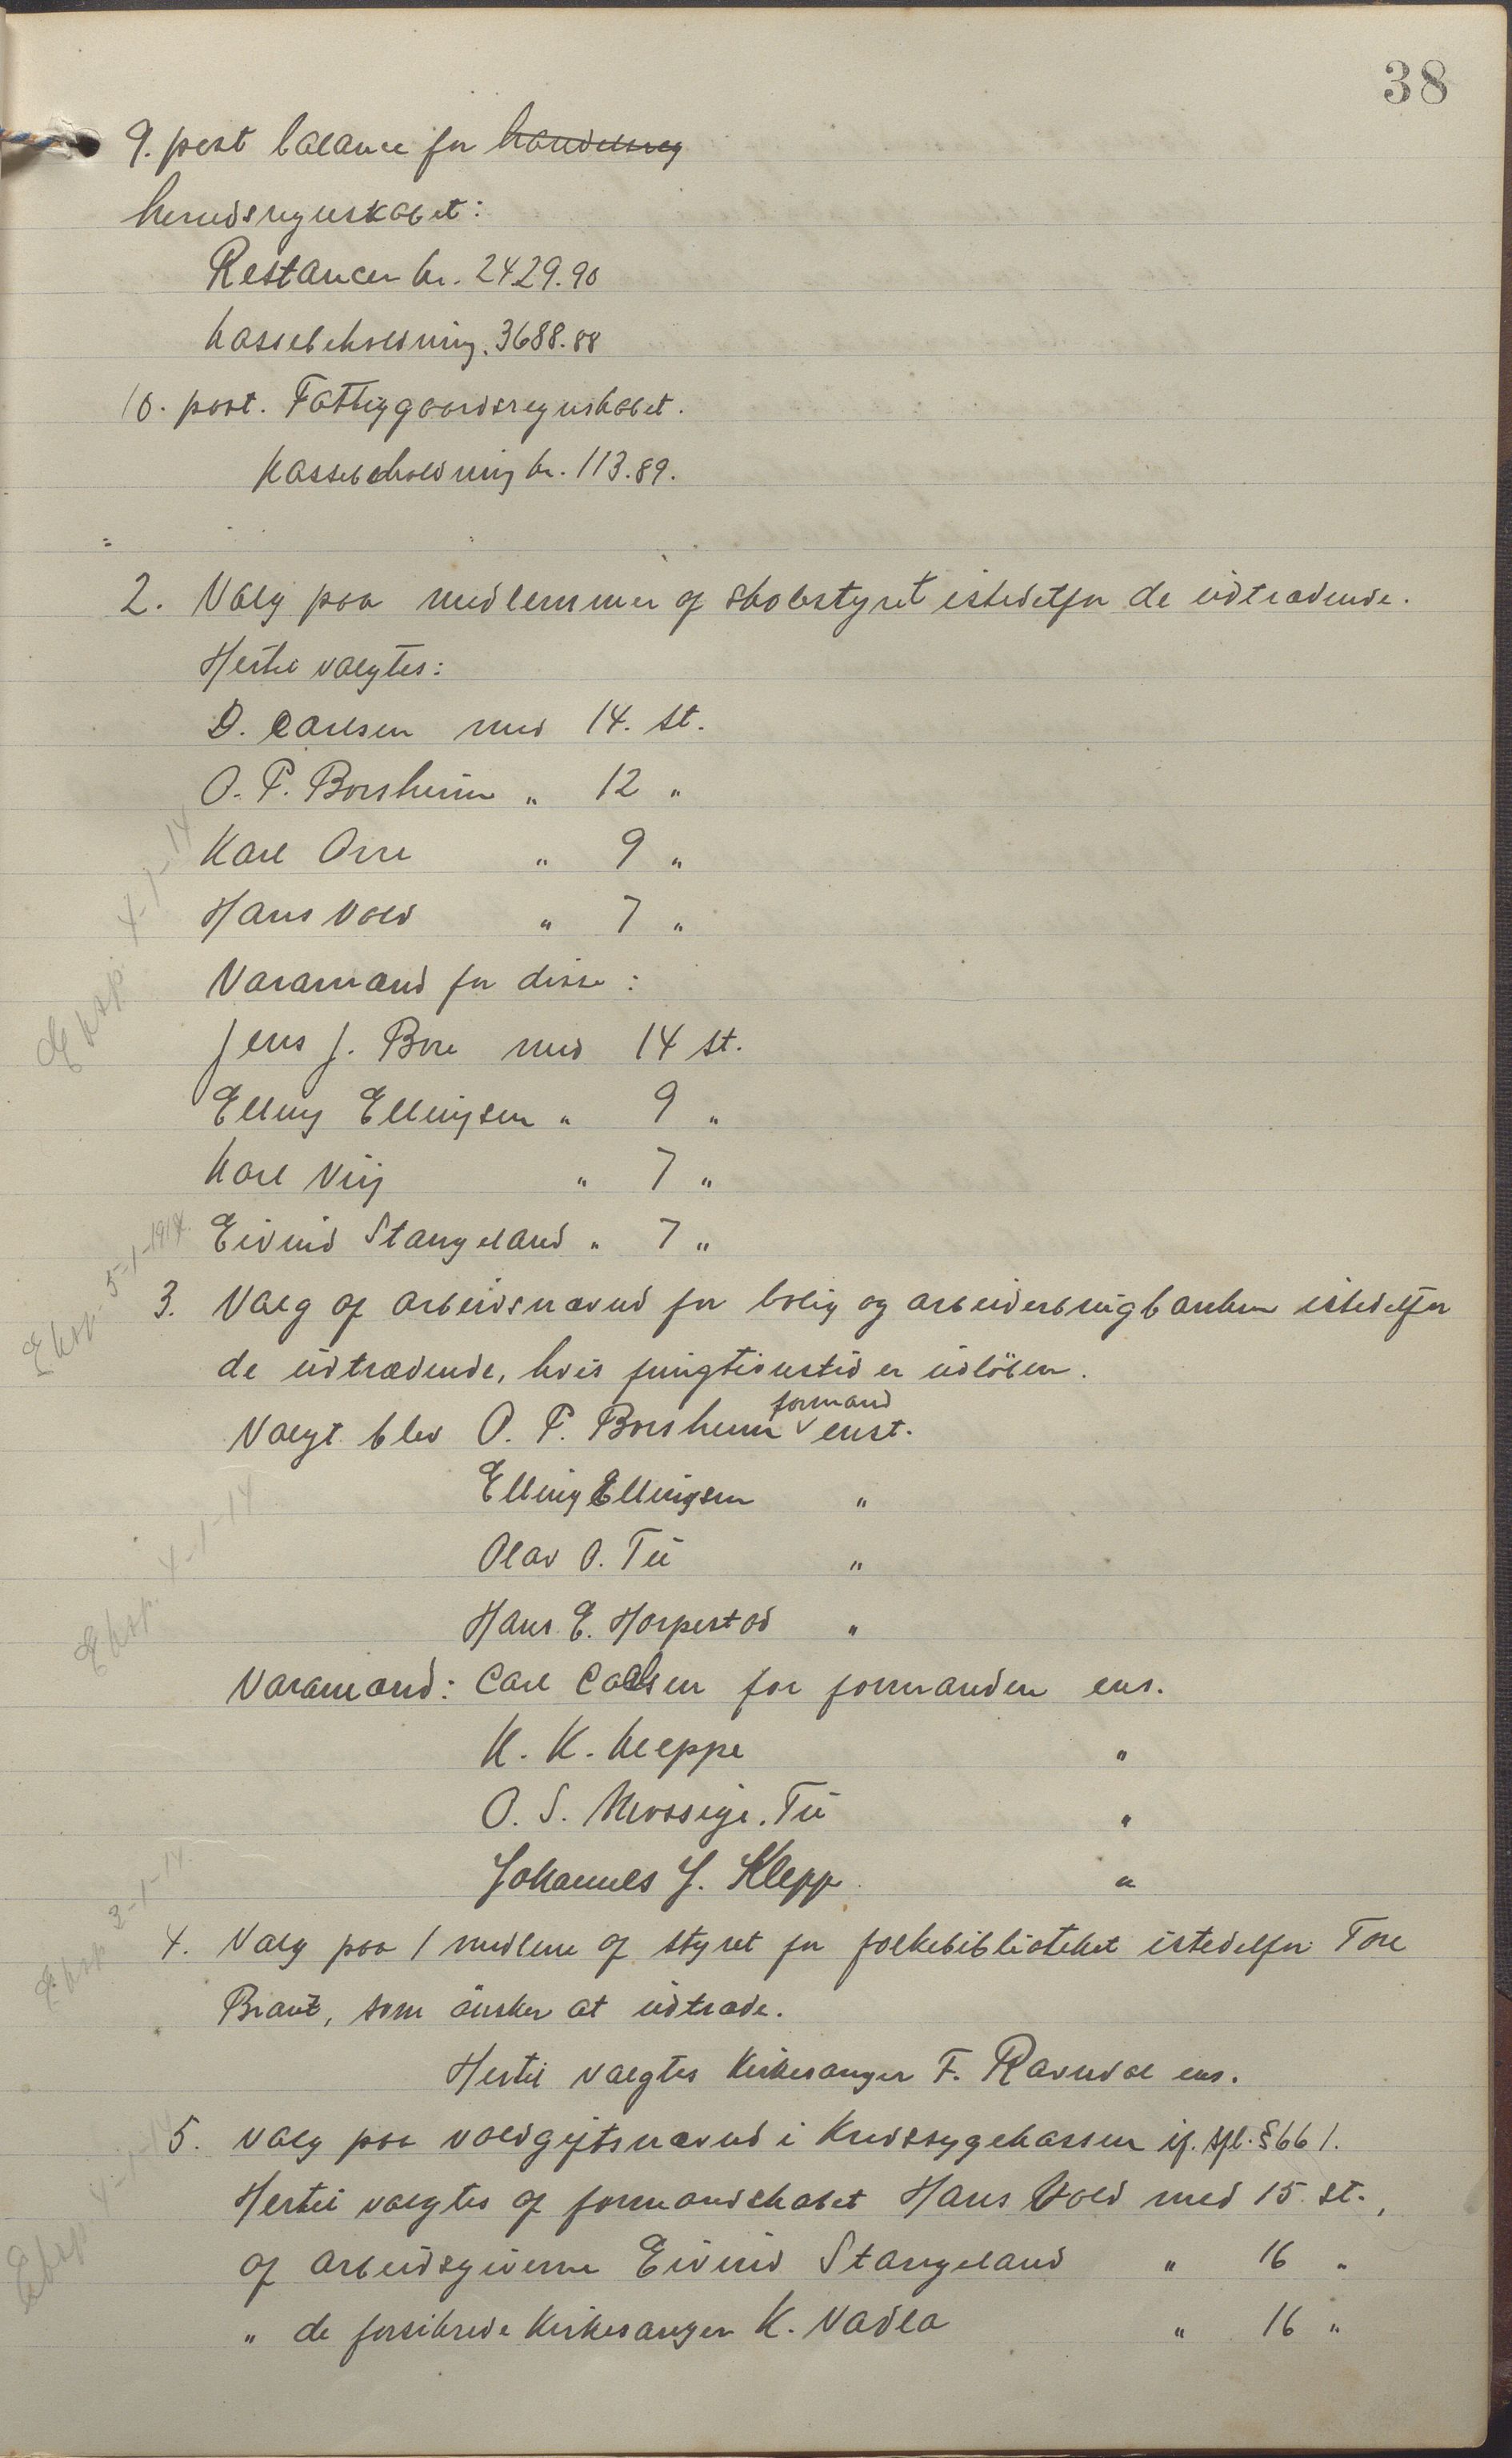 38
9. post balance for handelsreg
herredsregnskabet:
Restancer kr. 2429.90
Kassebeholdning. 3688.88
10. post. Fattiggaardsregnskabet.
Kassebeholdning kr. 113.89.
2. Valg paa medlemmer af skolestyret istedetfor de udtrædende.
Hertil valgtes:
D. Carlsen med 14. st.
O. P. Borsheim „ 12 „
Karl Orre „ 9 „
Hans Vold „ 7 „
Eksp. 4-1-14
Varamænd for disse:
Jens J. Bore med 14 st.
Elling Ellingsen „ 9 „
Karl Vig „ 7 „
Eivind Stangeland „ 7 „
Eksp. 5-1-1914.
3. Valg af arbeidsnævnd for bolig og arbeiderbrugbanken istedetfor
de udtrædende, hvis fungtionstid er udløben.
Valgt blev O. P. Borsheim formand enst.
Elling Ellingsen „
Olav O. Tu „
Hans E. Horpestad „
Eksp. 4-1-14
Varamænd: Carl Carlsen for formanden ens.
K. K. Kleppe „
O. S. Mossige. Tu „
Johannes J. Klepp „
Eksp 3-1-14.
4. Valg paa 1 medlem af styret for folkebiblioteket istedetfor Tore
Braut, som ønsker at udtræde.
Hertil valgtes Kirkesanger F. Ravndal ens.
5. Valg paa voldgiftsnævnd i Kredssygekassen if. sfl. § 66 1.
Eksp. 4-1-14
Hertil valgtes af formandskabet Hans Vold med 15 st.,
af arbeidsgiverne Eivind Stangeland „ 16 „
„ de forsikrede Kirkesanger K. Vadla „ 16 „